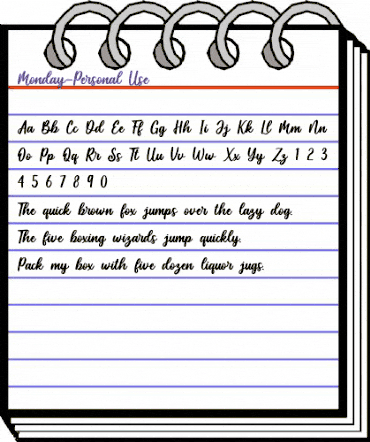 Monday-Personal Use
Aa Bb Cc Dd Ee Ff Gg Hh Ii Jj Kk Ll Mm Nn
Oo Pp Qq Rr Ss Tt Uu Vv Ww Xx Yy Zz 1 2 3
4 5 6 7 8 9 0
The quick brown fox jumps over the lazy dog.
The five boxing wizards jump quickly.
Pack my box with five dozen liquor jugs.